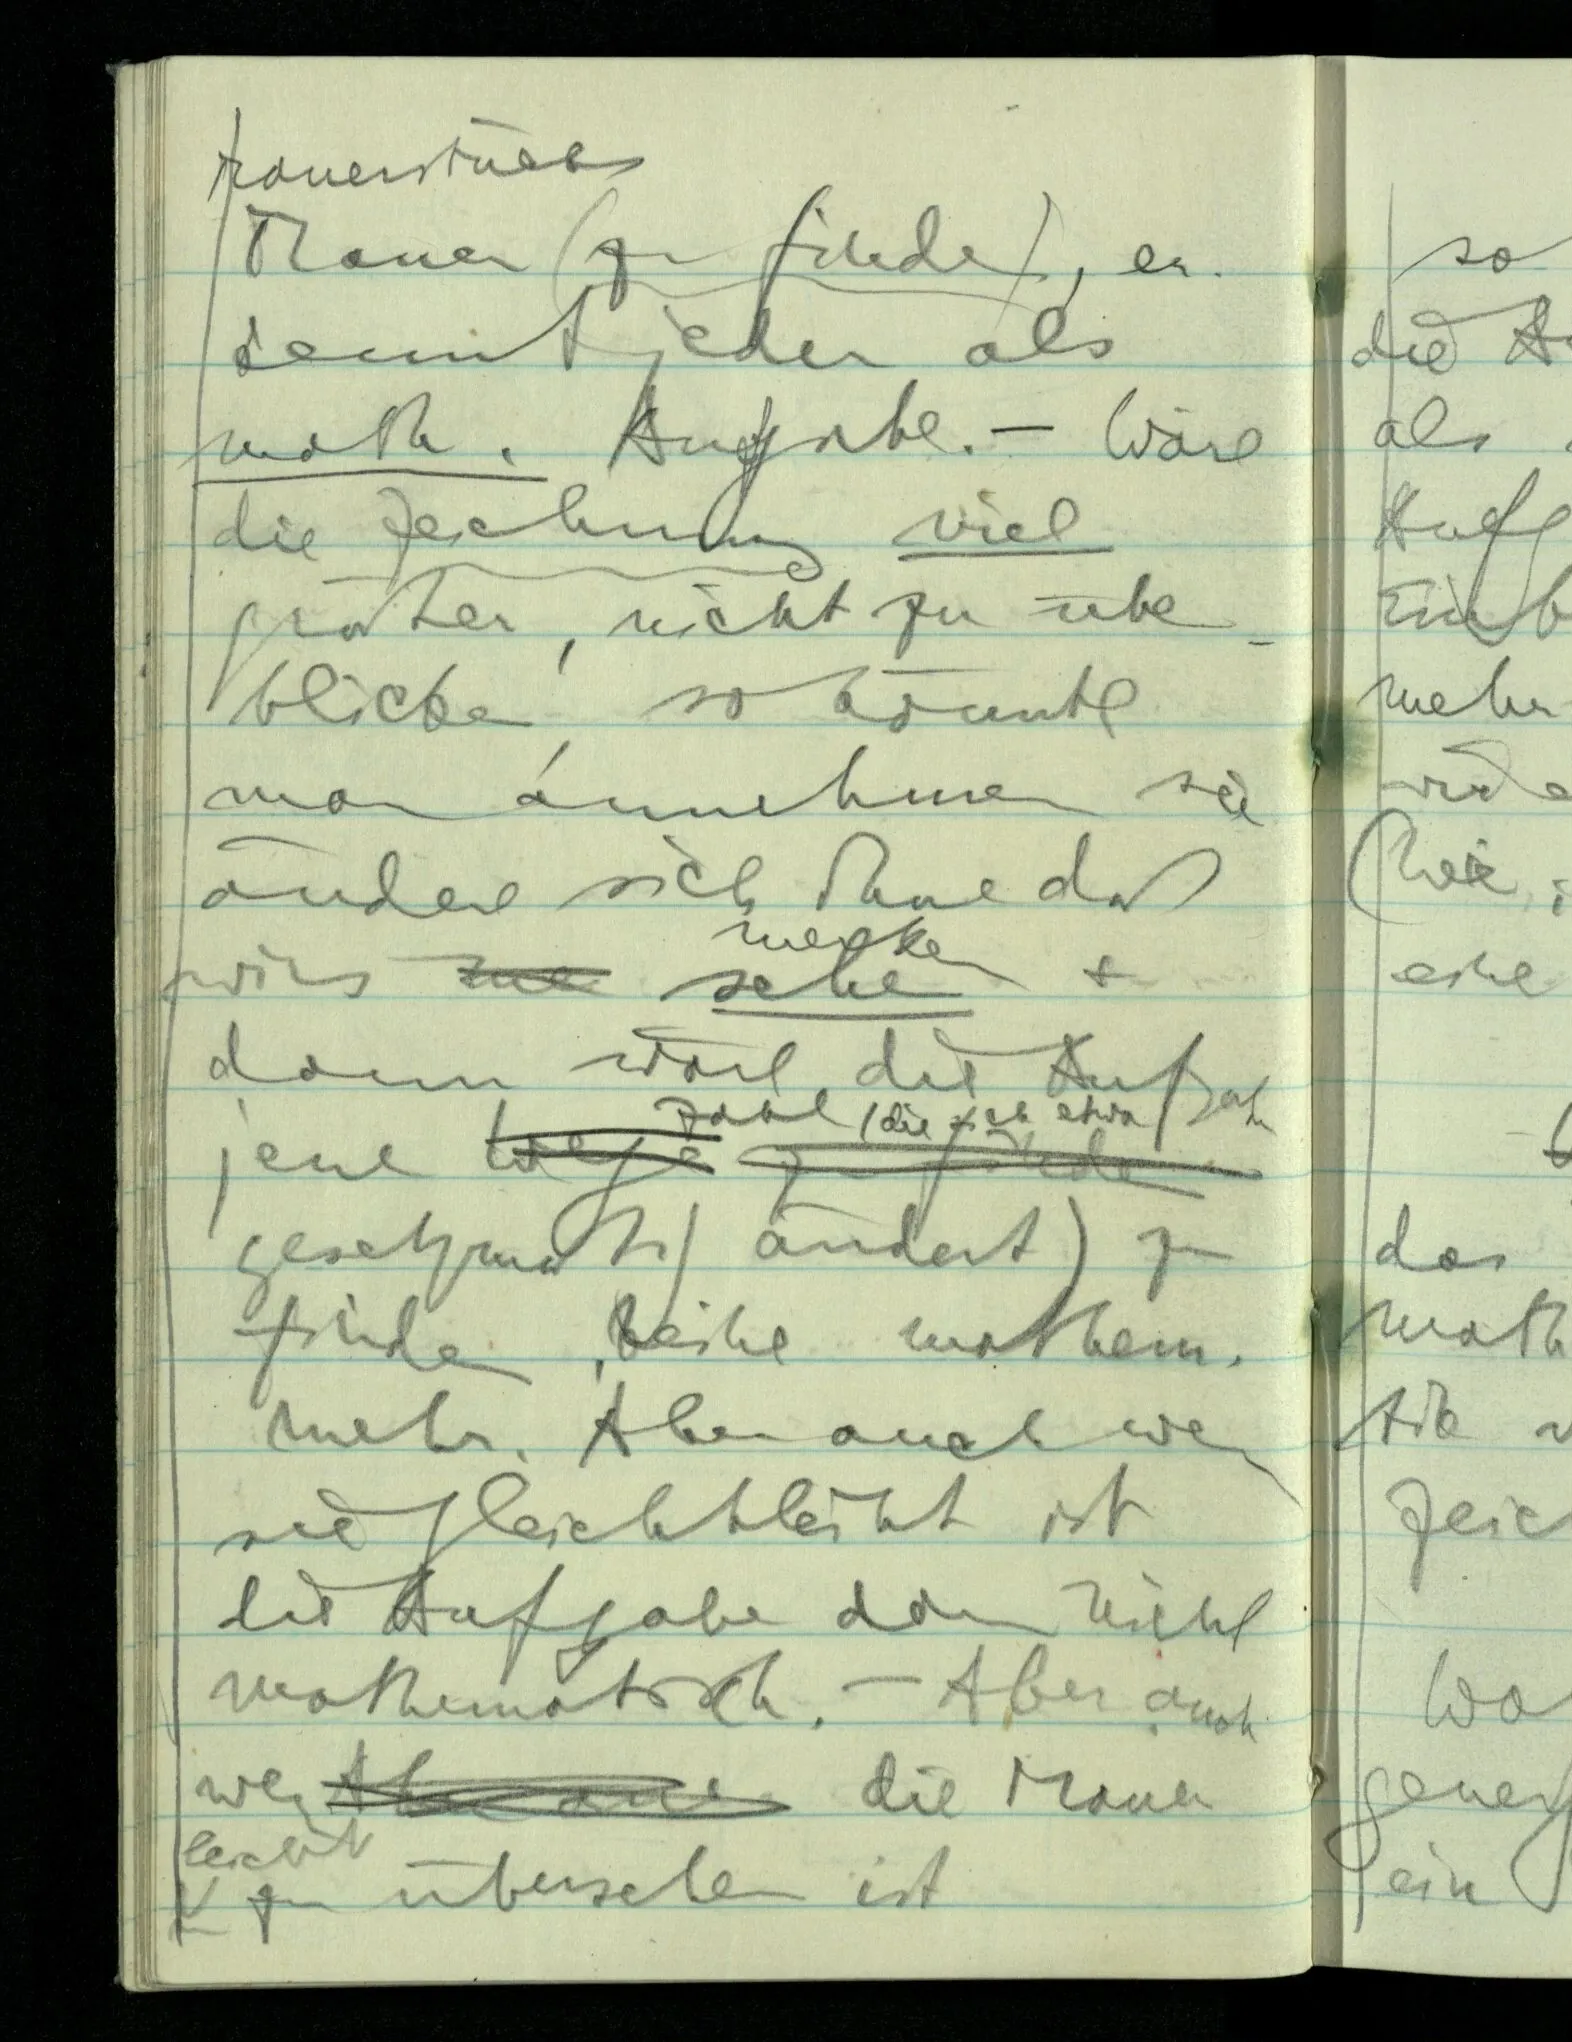 Mauerstücks
Mauer (zu finden), er-
kennt jeder als
math. Aufgabe. – Wäre
die Zeichnung viel
größer, nicht zu über-
blicken, so könnte
man annehmen sie
ändere sich ohne daß
merken
wirs sehen +
dann wäre die Aufgabe
Zahl (die sich etwa
jene Wege zu finden
gesetzmäßig ändert) zu
finden, keine mathem.
mehr. Aber auch wenn
sie gleichbleibt ist
die Aufgabe dann nicht
mathematisch. – Aber auch
wenn die Mauer
leicht
zu übersehen ist
so
die
als
Aufg
mehr
eine
das
Math
tik
Zeic
ein